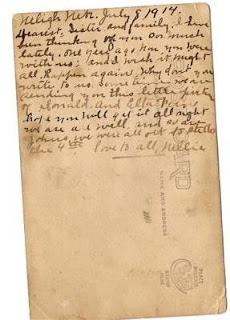 Neligh Nebr. July 8, 1914.
Dearest Sister and family, I have
been thinking of you so much
lately. One year ago now you were
with us; and I wish it might
all happen again. Why don't you
write to us. Some time we are
sending you this letter
of Donald and
hope you will get it all right
we are all well, and as
we were all out to
the 4th Love to all, Nellie
CARD
NAME AND ADDRESS
PLACE
POSTAGE
STAMP
HERE